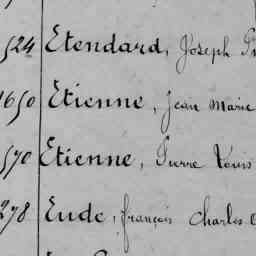 524 Etendard, Joseph
1650 Etienne, Jean Marie
570 Etienne, Pierre Louis
278 Eude, françois Charles